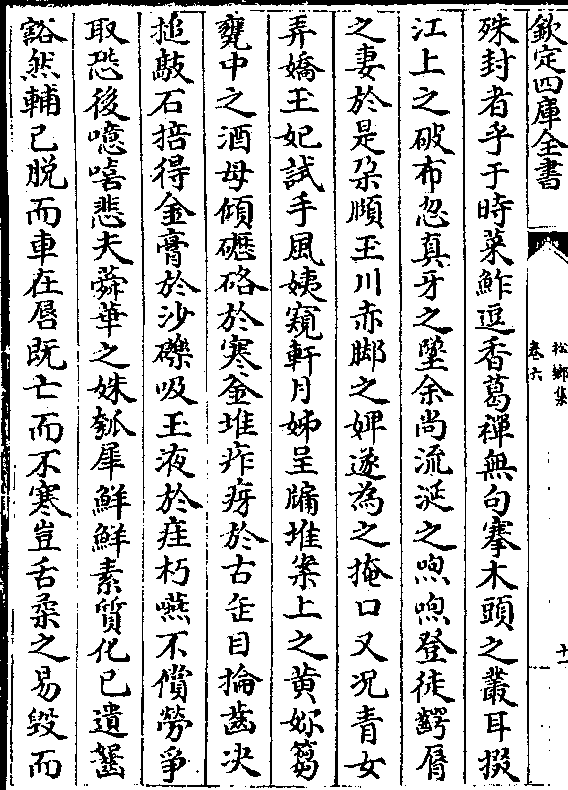 欽定四庫全書
松鄉集
卷六
十一
殊封者乎于時菜鮓逗香葛禪無句搴木頭之叢耳掇
江上之破布忽真牙之墜余尚流涎之喣喣登徒齶脣
之妻於是朶頥玉川赤脚之婢遂為之掩口又况青女
弄嬌王妃試手風姨窺軒月姊呈牖堆案上之黄妳篘
甕中之酒母傾礰硌於寒釡堆痄疨於古缶目掄齒决
搥敲石掊得金膏於沙礫吸玉液於疰朽嚥不償勞争
取恐後噫嘻悲夫舜華之姝瓠犀鮮鮮素質化已遺齾
豁然輔已脱而車在唇既亡而不寒豈舌柔之易毁而